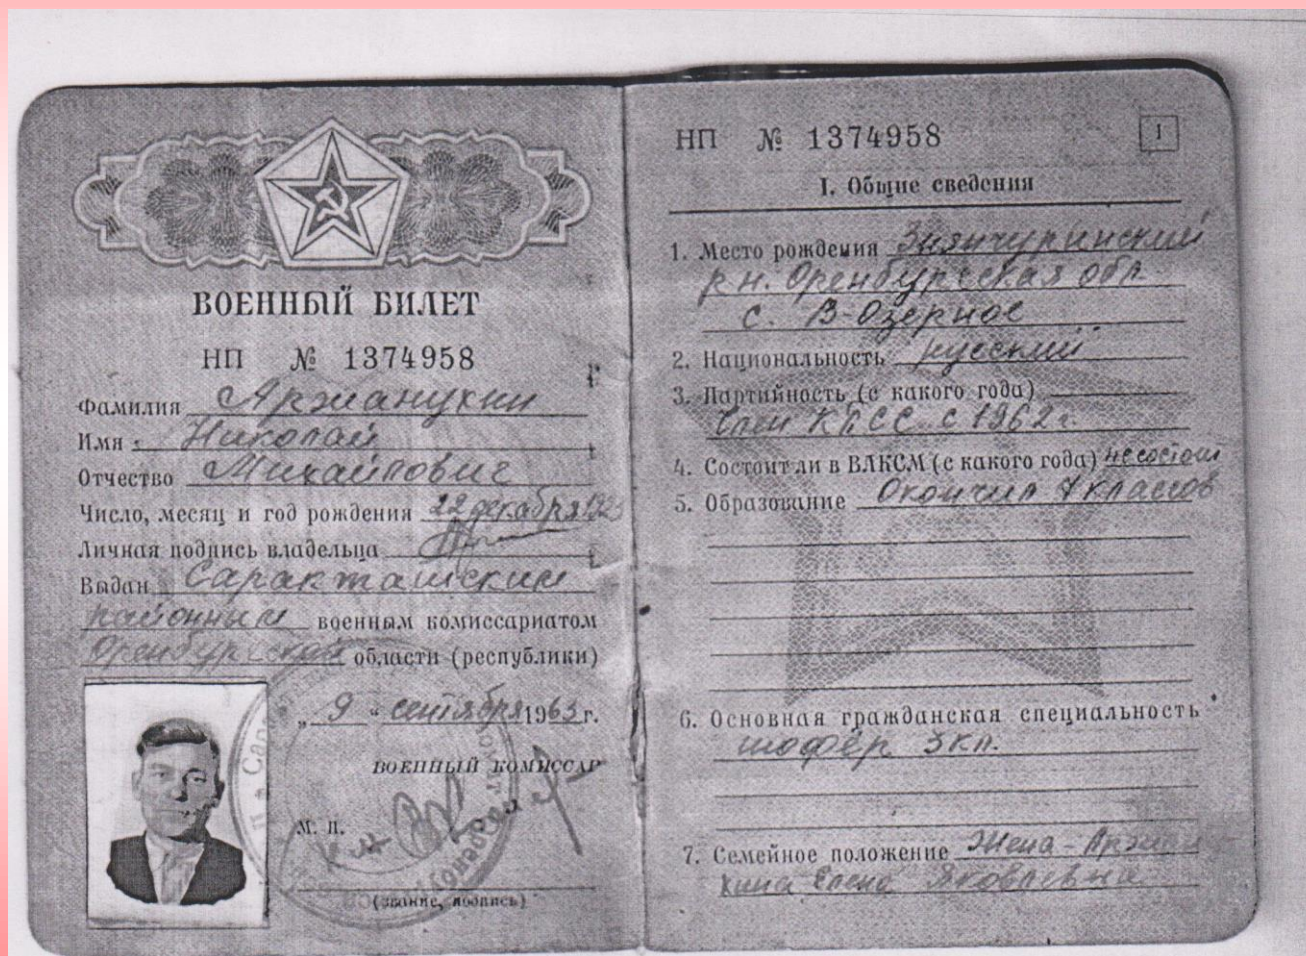 ВОЕННЫЙ БИЛЕТ
НП № 1374958
Фамилия Аржанухин
Имя Николай
Отчество Михайлович
Число, месяц и год рождения 22 декабря
Личная подпись владельца
Выдан Саракташским
районным военным комиссариатом
Оренбургской области (республики)
„ 9 “ сентября 1963 г.
ВОЕННЫЙ КОМИССАР
М. П.
(звание, подпись)
НП № 1374958
1
I. Общие сведения
1. Место рождения Зиянчуринский
р-н. Оренбургская обл.
с. В-Озерное
2. Национальность русский
3. Партийность (с какого года)
член КПСС с 1962 г.
4. Состоит ли в ВЛКСМ (с какого года) не состоит
5. Образование Окончил классов
6. Основная гражданская специальность
шофёр 3 кл.
7. Семейное положение Жена -
Елена Яковлевна